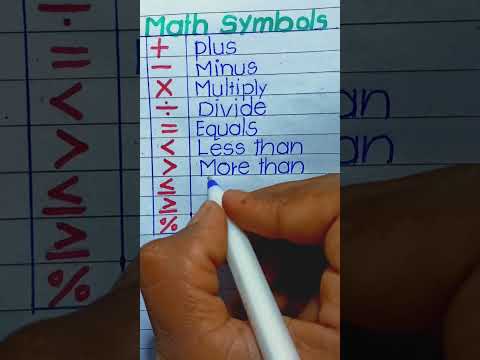 Math Symbols
+ plus
− Minus
× Multiply
÷ Divide
= Equals
< Less than
> More than
≤
≥
%